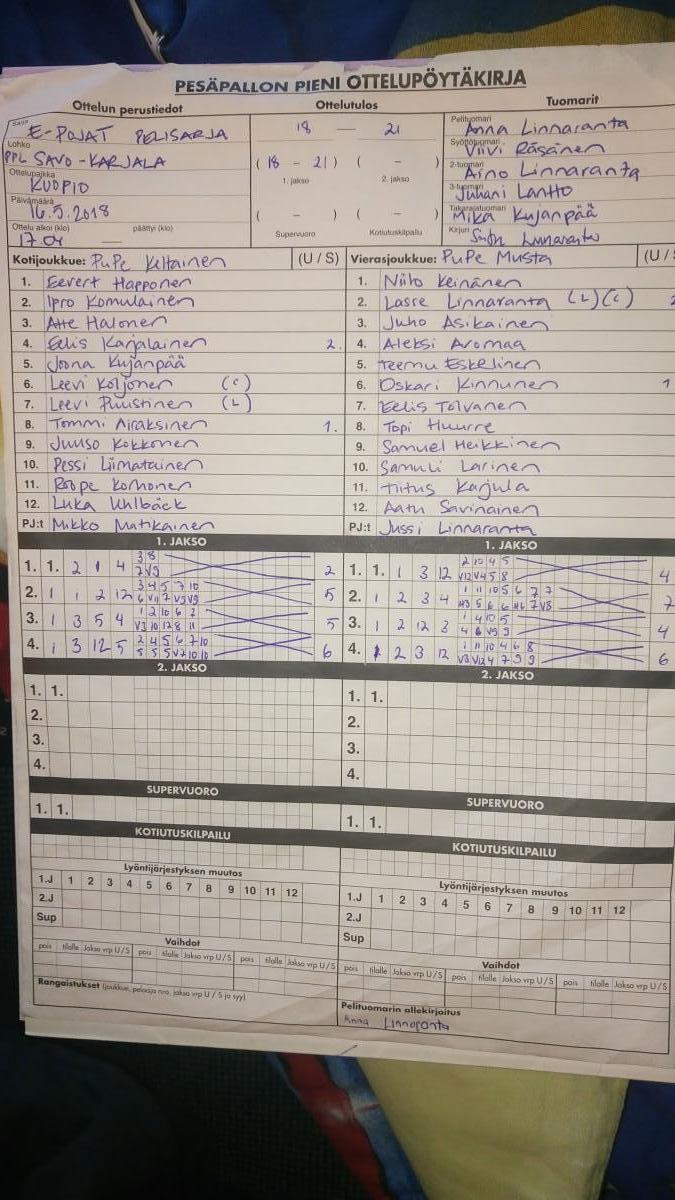 PESÄPALLON PIENI OTTELUPÖYTÄKIRJA
Ottelun perustiedot Ottelutulos Tuomarit
Sarja E-POJAT PELISARJA
Lohko PPL SAVO-KARJALA
Ottelupaikka KUOPIO
Päivämäärä 16.5.2018
Ottelu alkoi (klo) 17.01 päättyi (klo)
18 — 21
( 18 - 21 ) ( - )
1. jakso 2. jakso
( - ) ( - )
Supervuoro Kotiutuskilpailu
Pelituomari Anna Linnaranta
Syöttötuomari Viivi Räsänen
2-tuomari Aino Linnaranta
3-tuomari Juhani Lantto
Takarajatuomari Mika Kujanpää
Kirjuri Linnaranta
Kotijoukkue: PuPe Keltainen (U / S)
1. Eevert Happonen
2. Ipro Komulainen
3. Atte Halonen
4. Eelis Karjalainen 2.
5. Joona Kujanpää
6. Leevi Koljonen (C)
7. Leevi Puustinen (L)
8. Tommi Airaksinen 1.
9. Juuso Kokkonen
10. Pessi Liimatainen
11. Roope Korhonen
12. Luka Uhlbäck
PJ:t Mikko Matikainen
Vierasjoukkue: PuPe Musta (U /
1. Niilo Keinänen
2. Lasse Linnaranta (L)(C)
3. Juho Asikainen
4. Aleksi Aromaa
5. Teemu Eskelinen
6. Oskari Kinnunen 1
7. Eelis Toivanen
8. Topi Huurre
9. Samuel Heikkinen
10. Samuli Larinen
11. Tiitus Karjula
12. Aatu Savinainen
PJ:t Jussi Linnaranta
1. JAKSO
1. 1. 2 1 4 3 8 2
7 V9
2. 1 1 2 12 3 4 5 7 10 5
3. 1 3 5 4 1 2 10 6 2 5
V3 10 12 8 11
4. 1 3 12 5 2 4 5 6 7 10 6
5 5 5 V7 10 10
1. JAKSO
1. 1. 1 3 12 2 10 4 5 4
V12 V4 5 8
2. 1 2 3 4 1 11 10 5 6 7 7 7
3. 1 2 12 3 1 4 10 5 4
4 6 V9 9
4. 1 2 3 12 1 11 10 4 6 8 6
V3 V12 4 7 9 9
2. JAKSO
1. 1.
2.
3.
4.
2. JAKSO
1. 1.
2.
3.
4.
SUPERVUORO
1. 1.
SUPERVUORO
1. 1.
KOTIUTUSKILPAILU
KOTIUTUSKILPAILU
Lyöntijärjestyksen muutos
1.J 1 2 3 4 5 6 7 8 9 10 11 12
2.J
Sup
Lyöntijärjestyksen muutos
1.J 1 2 3 4 5 6 7 8 9 10 11 12
2.J
Sup
Vaihdot
pois tilalle Jakso vrp U / S pois tilalle Jakso vrp U / S pois tilalle Jakso vrp U / S
Vaihdot
pois tilalle Jakso vrp U / S pois tilalle Jakso vrp U / S pois tilalle Jakso vrp U / S
Rangaistukset (joukkue, pelaaja nro, jakso vrp U / S ja syy)
Pelituomarin allekirjoitus
Anna Linnaranta